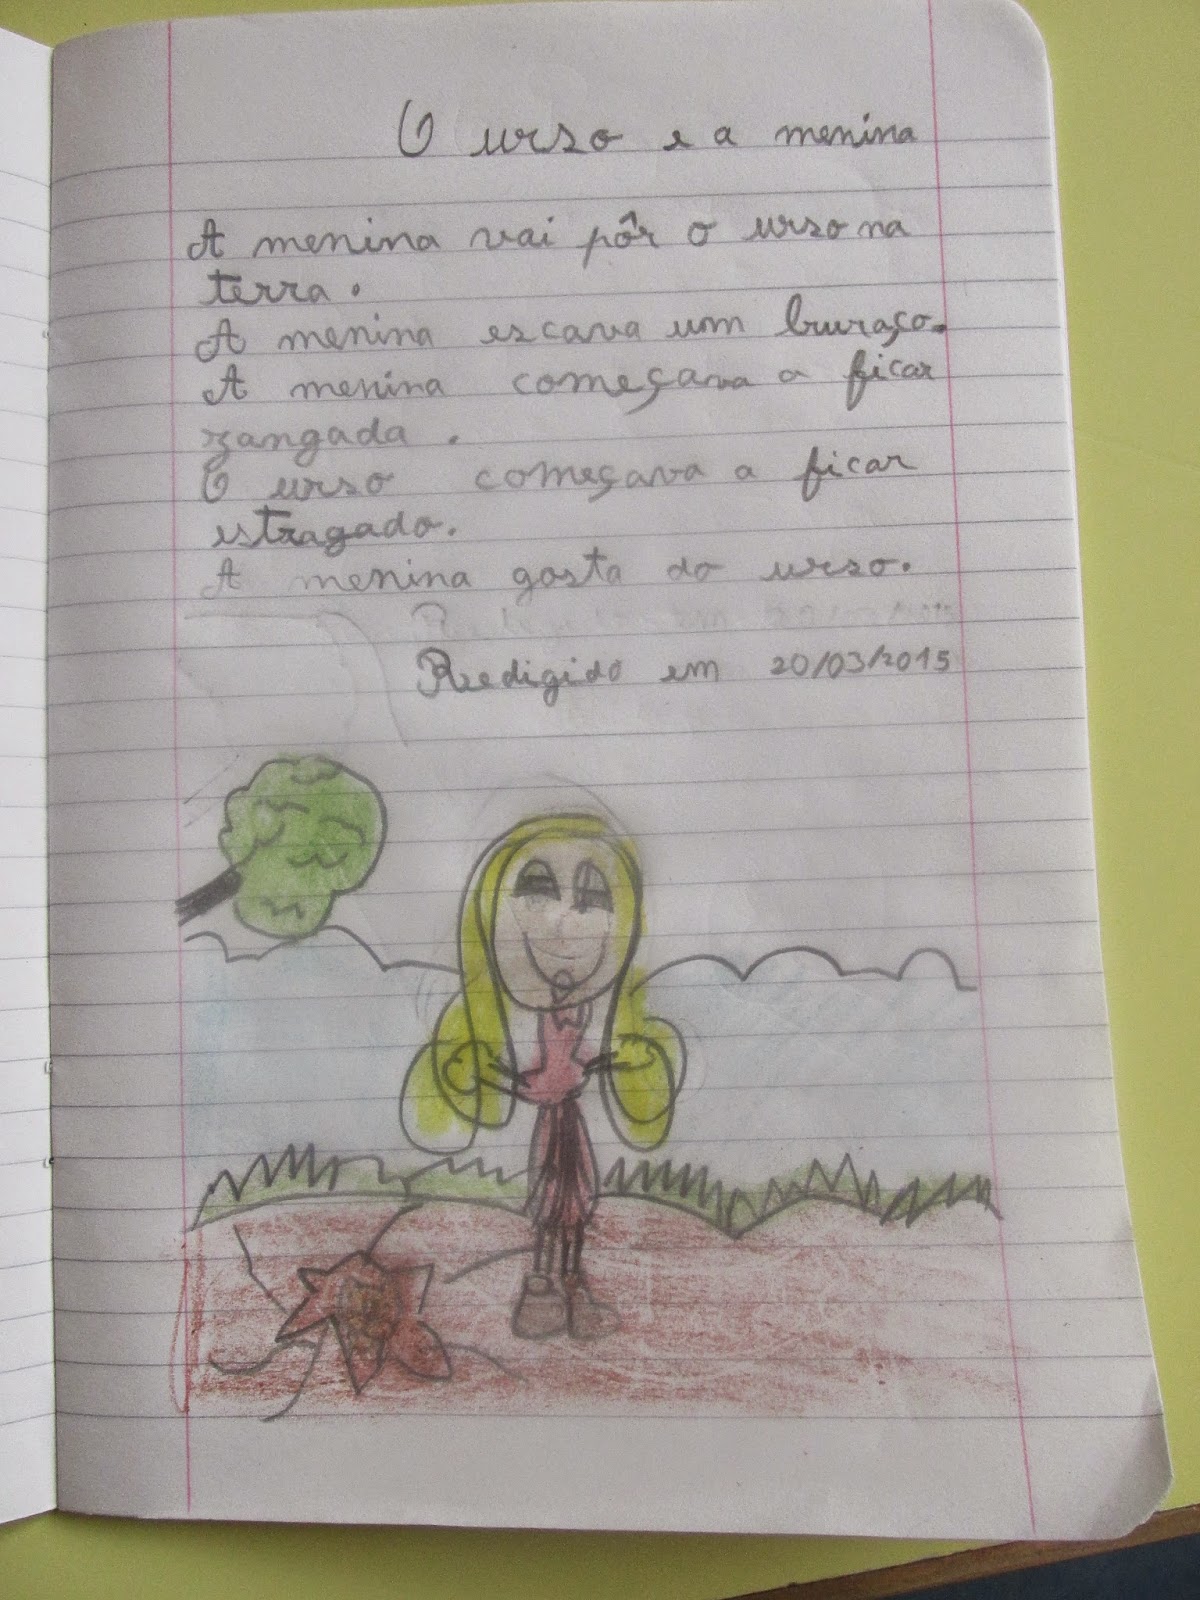 O urso e a menina
A menina vai pôr o urso na
terra.
A menina escava um buraço.
A menina começava a ficar
zangada.
O urso começava a ficar
estragado.
A menina gosta do urso.
Redigido em 20/03/2015